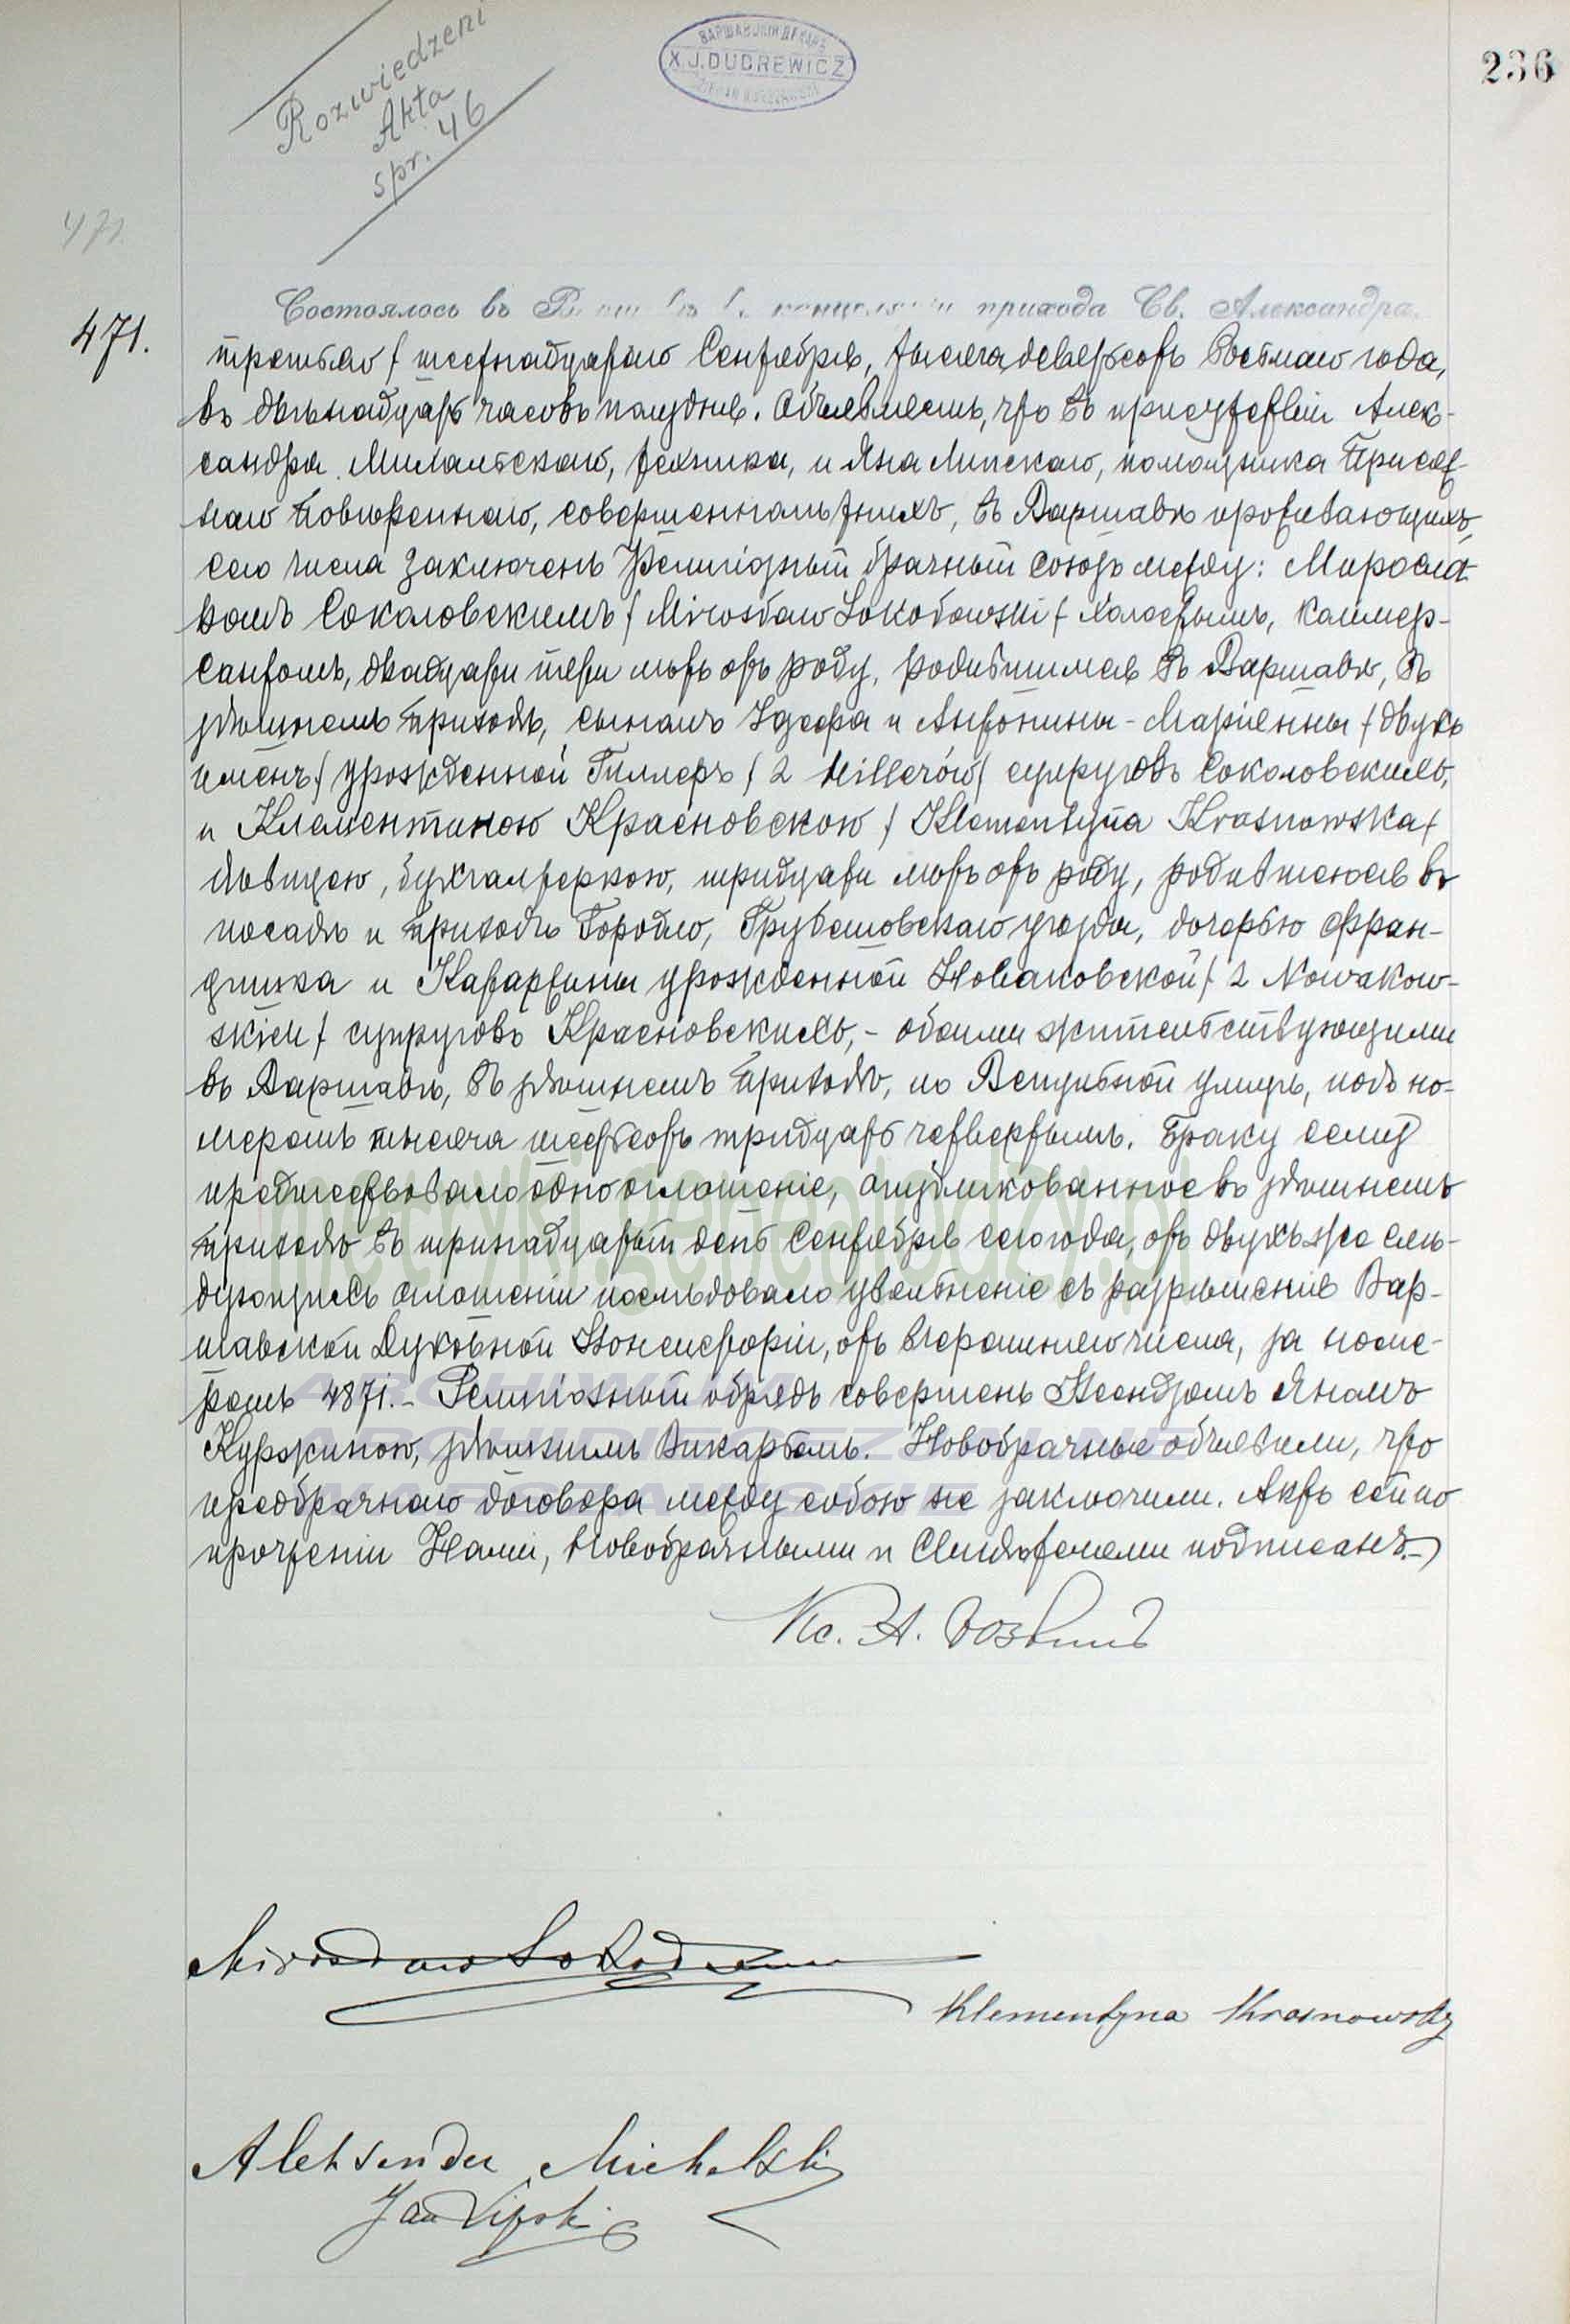 Rozwiedzeni
Akta
spr. 46
ВАРШАВСКІЙ ДЕКАНЪ
X. J. DUDREWICZ
236
471.
471.
Состоялось въ канцеляріи прихода Св. Александра.
третьяго / шестнадцатаго Сентября, тысяча девятьсотъ восьмаго года,
въ двѣнадцать часовъ полудня. Объявляемъ, что въ присутствіи Алек-
сандра Михальскаго, техника, и Яна Липскаго, помощника Присяж-
наго Повѣреннаго, совершеннолѣтнихъ, въ Варшавѣ проживающихъ,
сего числа заключенъ религіозный брачный союзъ между: Миросла-
вомъ Соколовскимъ / Mirosław Sokołowski / холостымъ, коммер-
сантомъ, двадцати пяти лѣтъ отъ роду, родившимся въ Варшавѣ, въ
здѣшнемъ приходѣ, сыномъ Іосифа и Антонины-Маріанны / двухъ
именъ / урожденной Гиллеръ / z Hillerów / супруговъ Соколовскихъ,
и Клементиною Красновскою / Klementyna Krasnowska /
дѣвицею, бухгалтеркою, тридцати лѣтъ отъ роду, родившеюся въ
посадѣ и приходѣ Городло, Грубешовскаго уѣзда, дочерью Фран-
цишка и Катаржины урожденной Новаковской / z Nowakow-
skich / супруговъ Красновскихъ, - обоими жительствующими
въ Варшавѣ, въ здѣшнемъ приходѣ, по улицѣ, подъ но-
меромъ тысяча шестьсотъ тридцать четвертымъ. Браку сему
предшествовало одно оглашеніе, опубликованное въ здѣшнемъ
приходѣ въ тринадцатый день Сентября сего года, отъ двухъ же слѣ-
дующихъ оглашеній послѣдовало увольненіе съ разрѣшенія Вар-
шавской Духовной Консисторіи, отъ вчерашняго числа, за номе-
ромъ 4871. - Религіозный обрядъ совершенъ Ксендзомъ Яномъ
здѣшнимъ Викаріемъ. Новобрачные объявили, что
предбрачнаго договора между собою не заключили. Актъ сей по
прочтеніи Нами, Новобрачными и Свидѣтелями подписанъ.-
Кс. А.
Mirosław Sokołowski
Klementyna Krasnowska
Aleksander Michalski
Jan Lipski
metryki.genealodzy.pl
ARCHIWUM
ARCHIDIECEZJALNE
WARSZAWSKIE